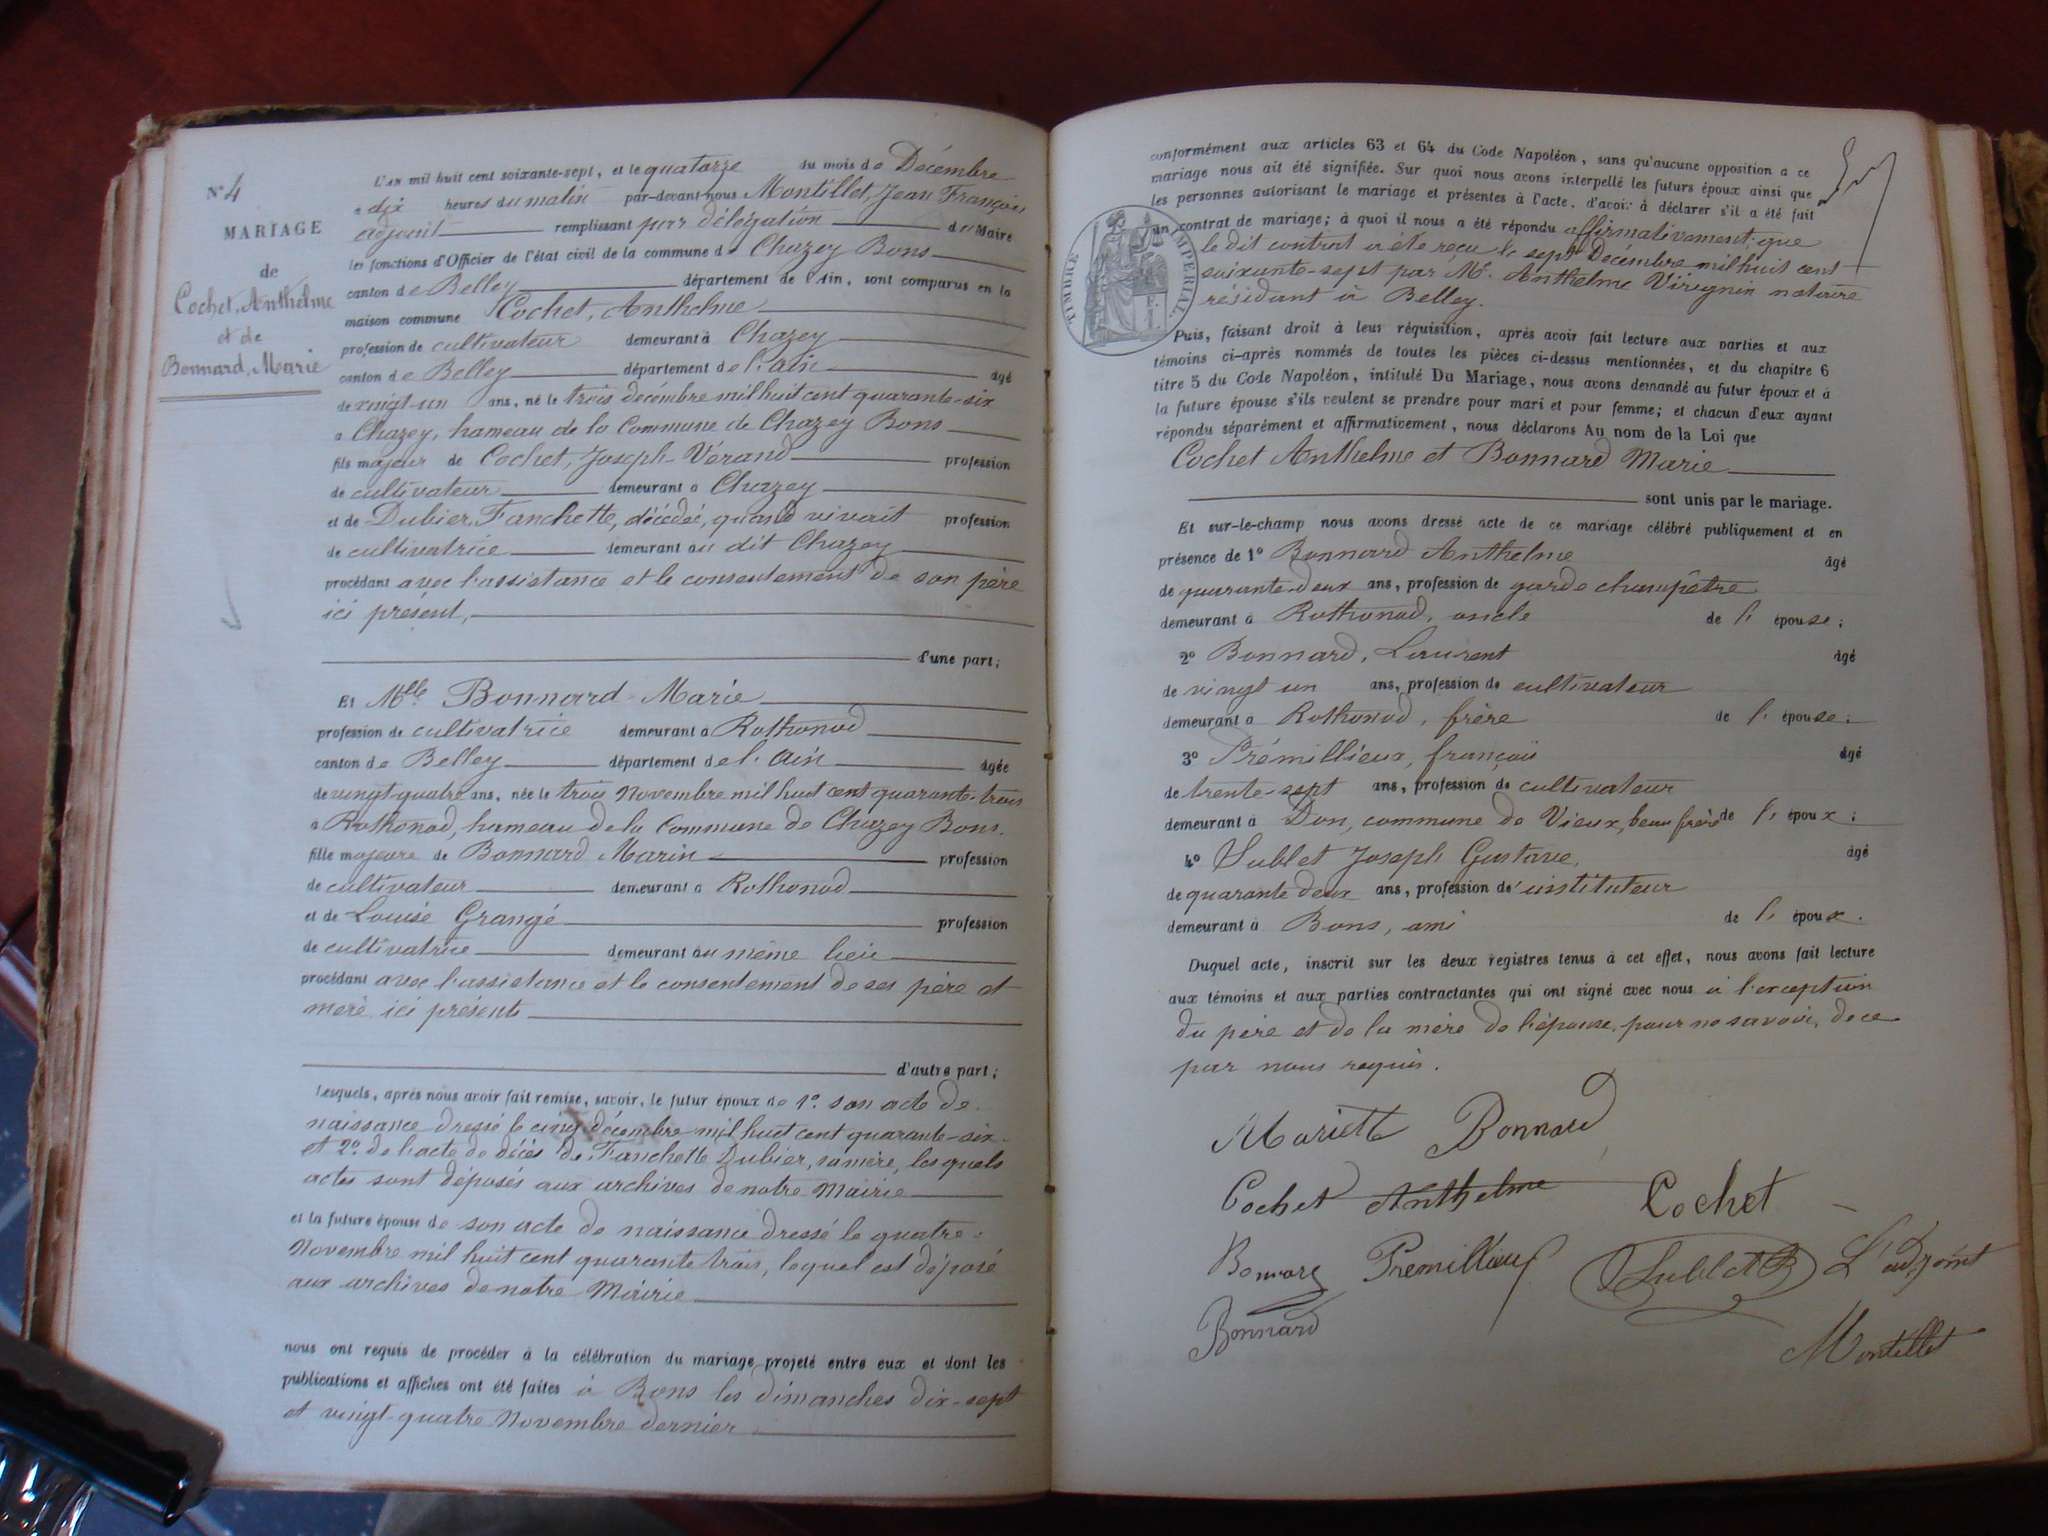 N° 4
MARIAGE
de
Cochet, Anthelme
et de
Bonnard, Marie
L'an mil huit cent soixante-sept, et le quatorze du mois de Décembre
à dix heures du matin par-devant nous Montillet, Jean François
adjoint remplissant par délégation du Maire
les fonctions d'Officier de l'état civil de la commune de Chazey Bons
canton de Belley département de l'Ain, sont comparus en la
maison commune Cochet, Anthelme
profession de cultivateur demeurant à Chazey
canton de Belley département de l'ain âgé
de vingt-un ans, né le trois décembre mil huit cent quarante-six
à Chazey, hameau de la Commune de Chazey Bons
fils majeur de Cochet, Joseph-Vérand profession
de cultivateur demeurant à Chazey
et de Dubier, Fanchette, décédée, quand vivait profession
de cultivatrice demeurant au dit Chazey
procédant avec l'assistance et le consentement de son père
ici présent,
d'une part;
Et Mlle Bonnard Marie
profession de cultivatrice demeurant à Rothonod
canton de Belley département de l'ain âgée
de vingt-quatre ans, née le trois Novembre mil huit cent quarante-trois
à Rothonod, hameau de la Commune de Chazey Bons.
fille majeure de Bonnard Marin profession
de cultivateur demeurant à Rothonod
et de Louise Grangé profession
de cultivatrice demeurant au même lieu
procédant avec l'assistance et le consentement de ses père et
mère ici présents
d'autre part;
Lesquels, après nous avoir fait remise, savoir, le futur époux de 1° son acte de
naissance dressé le cinq décembre mil huit cent quarante-six
et 2° de l'acte de décès de Fanchette Dubier, sa mère, les quels
actes sont déposés aux archives de notre Mairie
et la future épouse de son acte de naissance dressé le quatre
Novembre mil huit cent quarante trois, lequel est déposé
aux archives de notre Mairie
nous ont requis de procéder à la célébration du mariage projeté entre eux et dont les
publications et affiches ont été faites à Bons les dimanches dix-sept
et vingt-quatre Novembre dernier
conformément aux articles 63 et 64 du Code Napoléon, sans qu'aucune opposition a ce
mariage nous ait été signifiée. Sur quoi nous avons interpellé les futurs époux ainsi que
les personnes autorisant le mariage et présentes à l'acte, d'avoir à déclarer s'il a été fait
un contrat de mariage; à quoi il nous a été répondu affirmativement, que
le dit contrat a été reçu le sept Décembre mil huit cent
soixante-sept par Me. Anthelme Virignin notaire
résidant à Belley.
TIMBRE IMPERIAL
Puis, faisant droit à leur réquisition, après avoir fait lecture aux parties et aux
témoins ci-après nommés de toutes les pièces ci-dessus mentionnées, et du chapitre 6
titre 5 du Code Napoléon, intitulé Du Mariage, nous avons demandé au futur époux et à
la future épouse s'ils veulent se prendre pour mari et pour femme; et chacun d'eux ayant
répondu séparément et affirmativement, nous déclarons Au nom de la Loi que
Cochet Anthelme et Bonnard Marie
sont unis par le mariage.
Et sur-le-champ nous avons dressé acte de ce mariage célébré publiquement et en
présence de 1° Bonnard Anthelme âgé
de quarante-deux ans, profession de garde champêtre
demeurant à Rothonod, oncle de l'épouse;
2° Bonnard, Laurent âgé
de vingt un ans, profession de cultivateur
demeurant à Rothonod, frère de l'épouse;
3° Prémillieux, françois âgé
de trente-sept ans, profession de cultivateur
demeurant à Don, commune de Vieux, beau frère de l'époux;
4° Sublet Joseph Gustave, âgé
de quarante deux ans, profession d'instituteur
demeurant à Bons, ami de l'époux.
Duquel acte, inscrit sur les deux registres tenus à cet effet, nous avons fait lecture
aux témoins et aux parties contractantes qui ont signé avec nous à l'exception
du père et de la mère de l'épouse, pour ne savoir, de ce
par nous requis.
Mariette Bonnard
Cochet Anthelme Cochet
Bonnard Premillieux Sublet L'adjoint
Bonnard Montillet